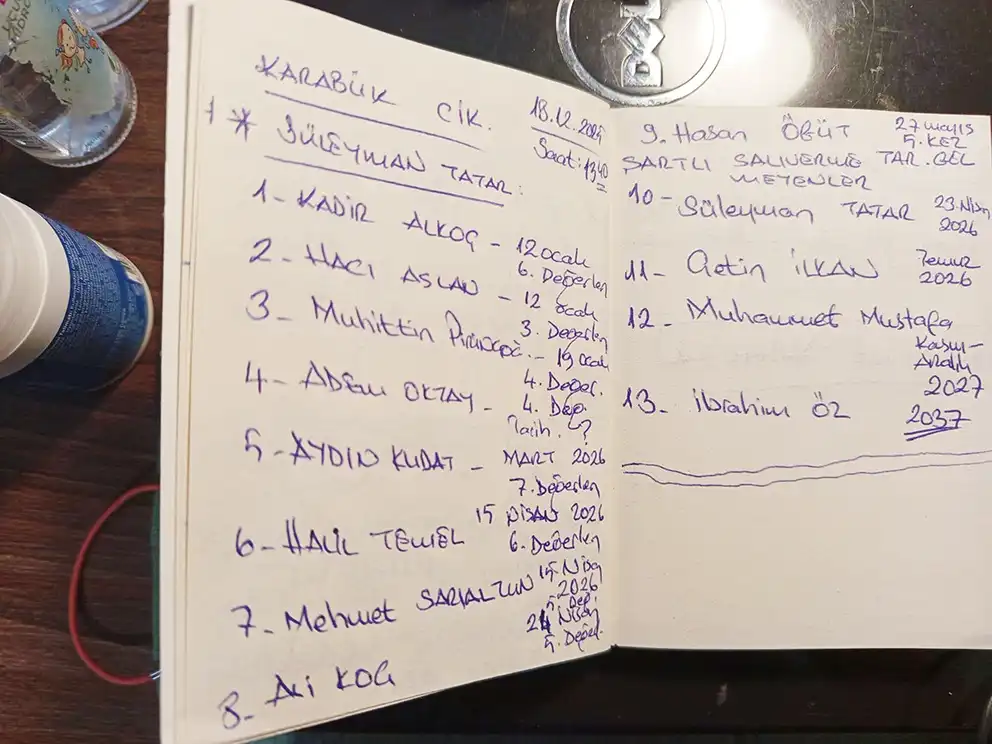 KARABÜK CİK.
18.12.2025
Saat: 13:40
1 * SÜLEYMAN TATAR:
1- KADİR ALKOÇ - 12 ocak
6. Değerlen
2- HACI ASLAN - 12 ocak
3. Değerlen
3- Muhittin - 19 ocak
4. Değer.
4- ADEM OKTAY - 4. Değ.
Tarih. ?
5- AYDIN KUDAT - MART 2026
7. Değerlen
6- HALİL TEMEL
15 NİSAN 2026
6. Değerlen
7- Mehmet SARIALTUN
15. Nisan
2026
5. Değ.
8- ALİ KOÇ
24 Nisan
5. Değer.
9. Hasan ÖĞÜT 27 mayıs
5. KEZ
ŞARTLI SALIVERME TAR. GEL
MEYENLER
10- Süleyman TATAR 23. Nisan
2026
11- Çetin İLKAN Temmuz
2026
12- Muhammet Mustafa
Kasım-
Aralık
2027
13- İbrahim ÖZ 2037
DELL